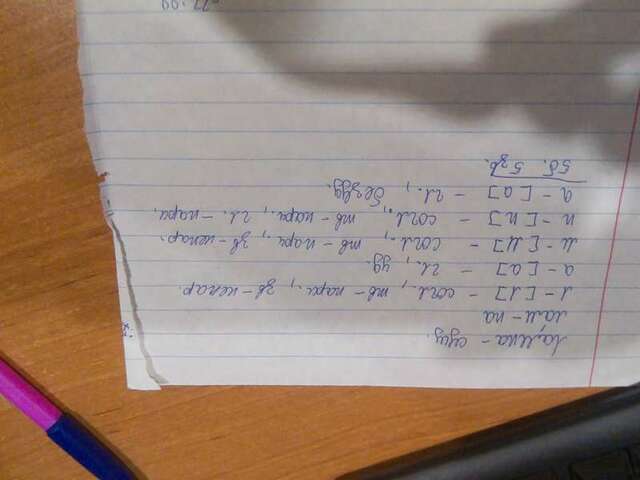 Лампа - сущ.
лам - па
л - [л] - согл., тв - парн., зв - непар.
а - [а] - гл., уд.
м - [м] - согл., тв - парн., зв - непар.
п - [п] - согл., тв - парн., гл. - парн.
а - [а] - гл., безуд.
5б. 5зв.